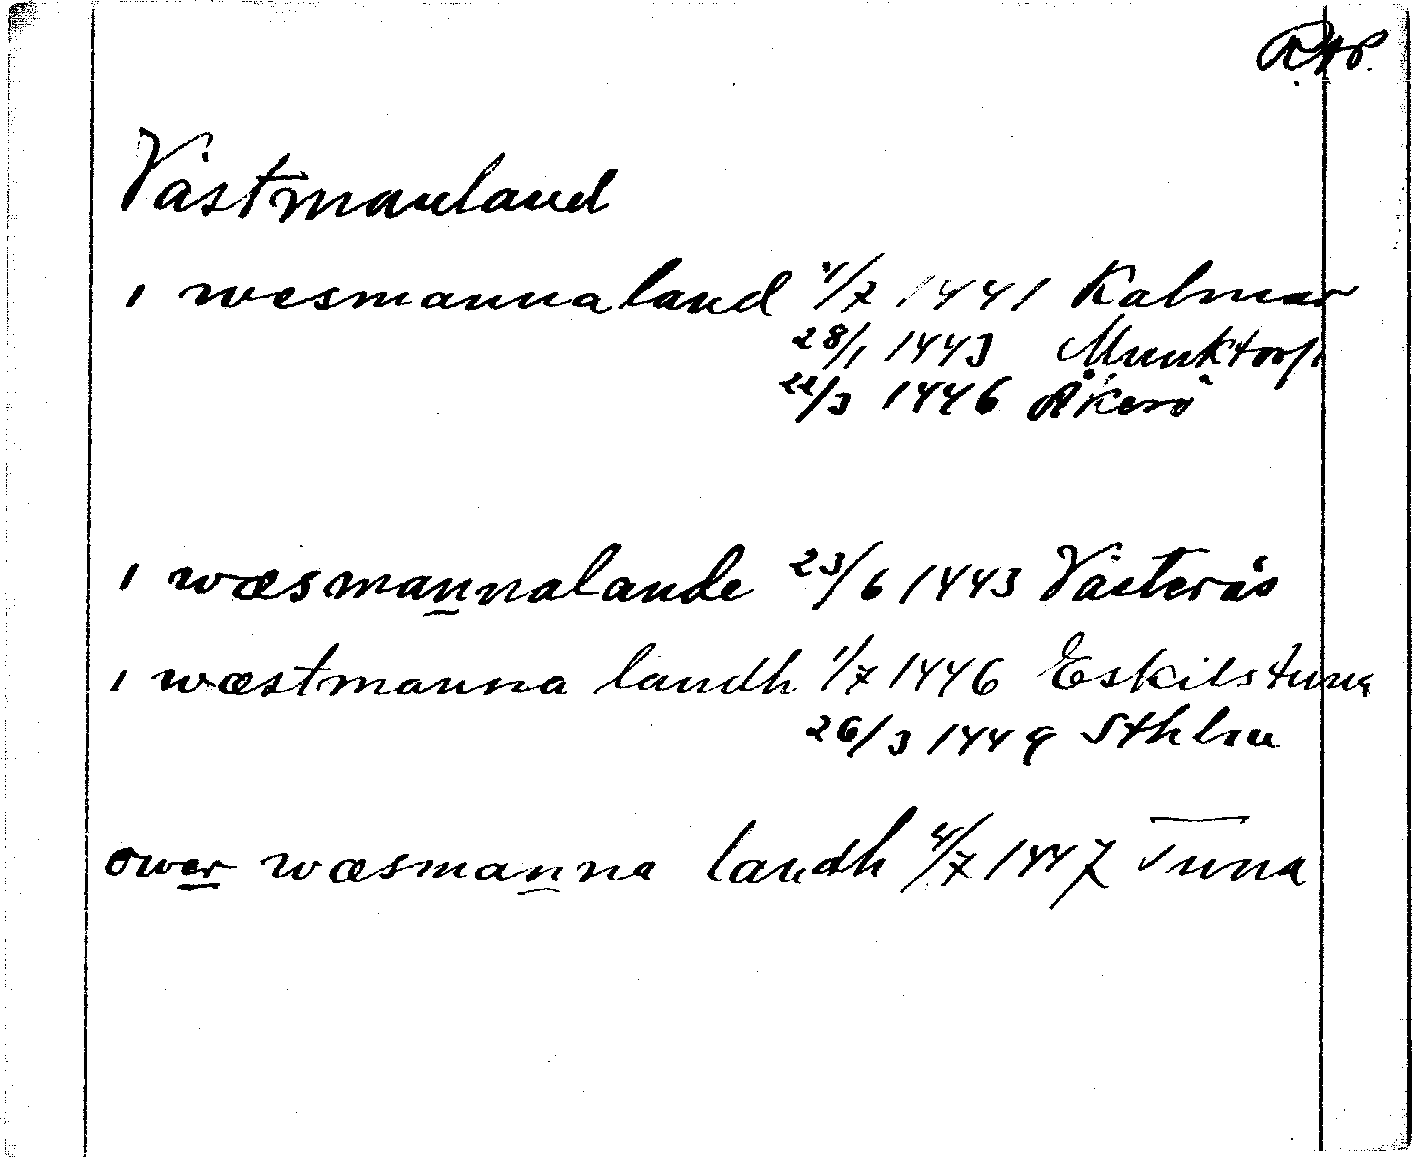 RAP.
Västmanland
i wesmannaland 4/7 1441 Kalmar
28/1 1443 Munktorp
22/3 1446 Åkerö
i wæsmannalande 23/6 1443 Västerås
i wæstmanna landh 1/7 1446 Eskilstuna
26/3 1449 Sthlm
ower wæsmanna landh 4/7 1447 Tuna